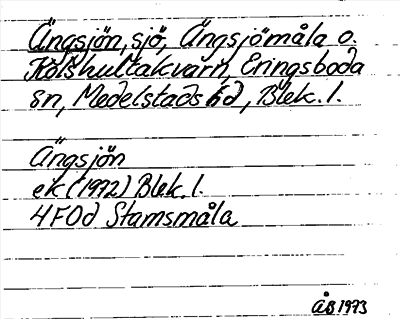 Ängsjön, sjö, Ängsjömåla o.
Kölshultakvarn, Eringsboda
sn, Medelstads hd, Blek. l.
Ängsjön
ek (1972) Blek. l.
4F0d Stamsmåla
ÅB 1973